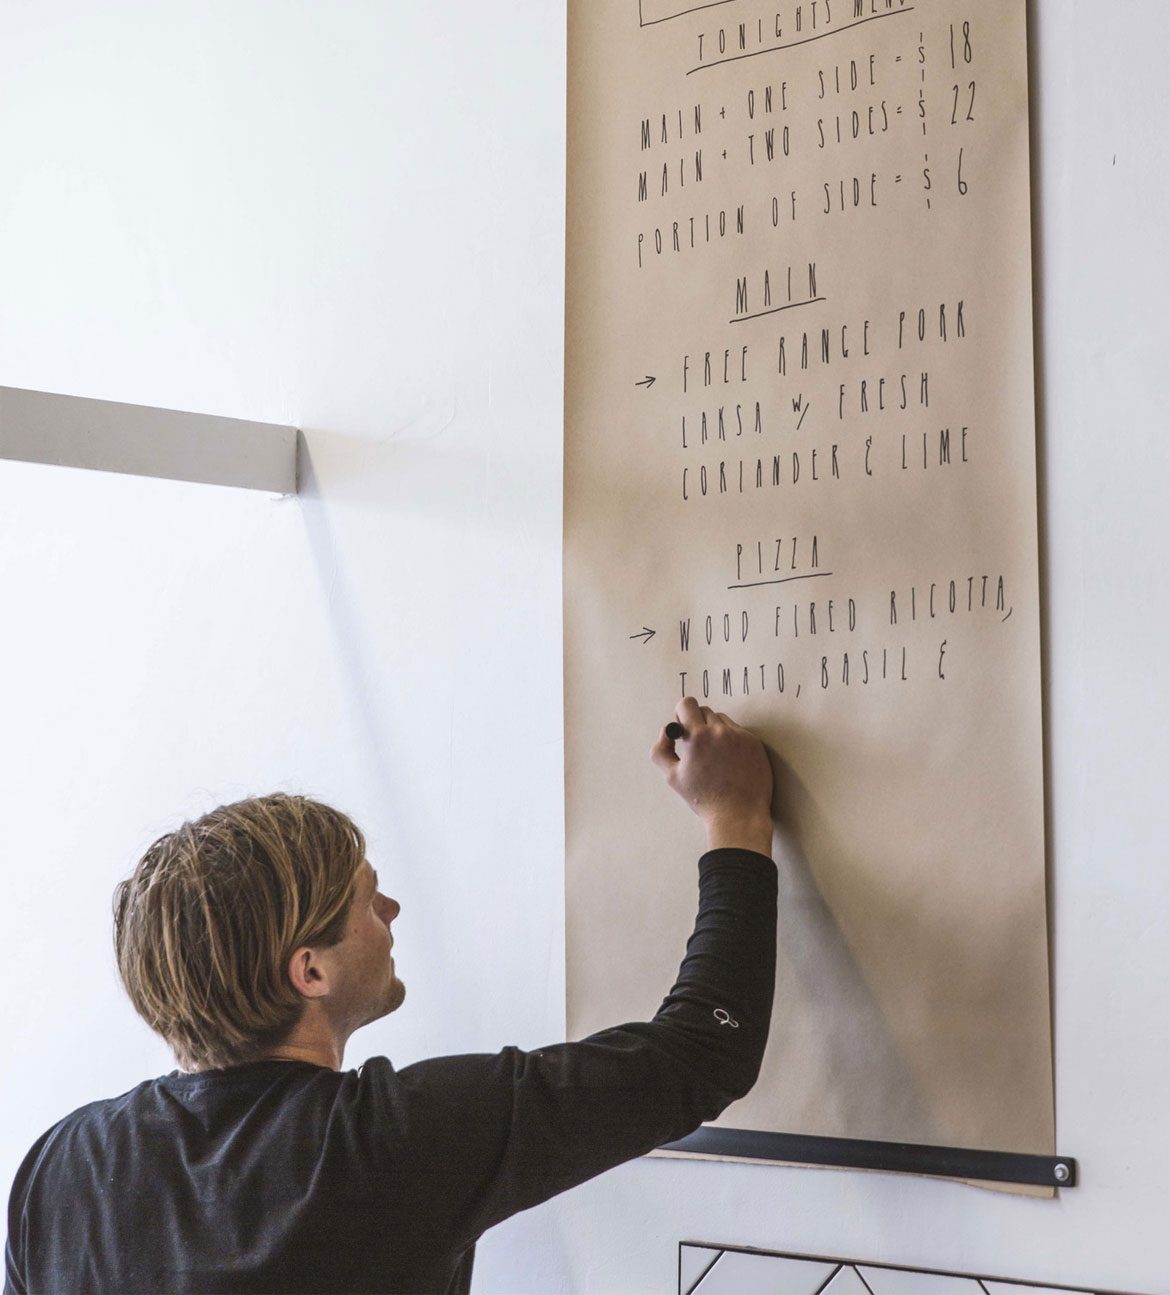 TONIGHTS MENU
MAIN + ONE SIDE = $ 18
MAIN + TWO SIDES = $ 22
PORTION OF SIDE = $ 6
MAIN
→ FREE RANGE PORK
LAKSA W/ FRESH
CORIANDER & LIME
PIZZA
→ WOOD FIRED RICOTTA,
TOMATO, BASIL &